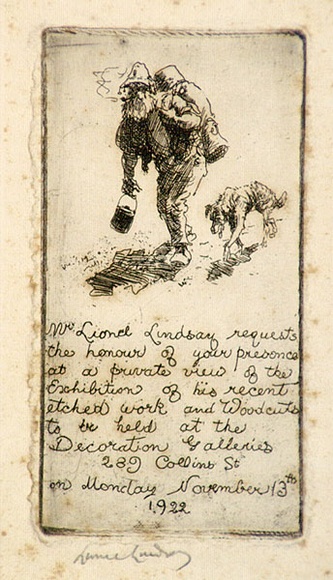 Mr Lionel Lindsay requests
the honour of your presence
at a private view of the
Exhibition of his recent
etched work and Woodcuts
to be held at the
Decoration Galleries
289 Collins St
on Monday November 13th
1922
Lionel Lindsay